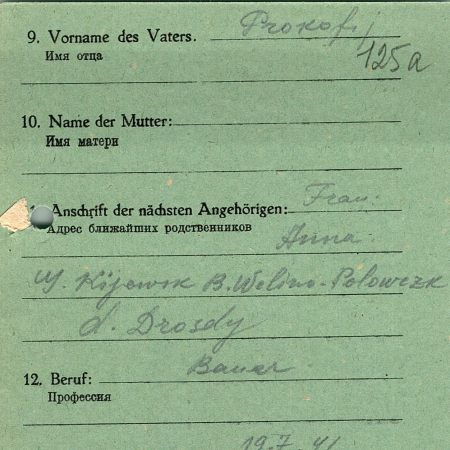 9. Vorname des Vaters. Prokofij
Имя отца
125a
10. Name der Mutter:
Имя матери
Anschrift der nächsten Angehörigen: Frau:
Адрес ближайших родственников
Anna
Y. Kijewsk B. Welino-Polowezk
d. Drosdy
12. Beruf: Bauer
Профессия
19.7.41